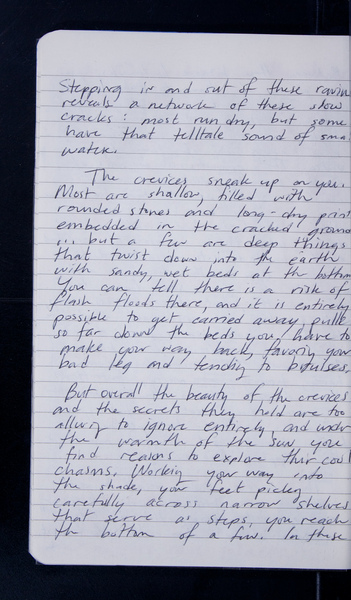 Stepping in and out of these ravin
reveals a network of these slow
cracks: most run dry, but some
have that telltale sound of sma
water.
The crevices sneak up on you.
Most are shallow, filled with
rounded stones and long-dry
embedded in the cracked ground
... but a few are deep things
that twist down into the earth
with sandy, wet beds at the bottom
You can tell there is a risk of
flash floods there, and it is entirely
possible to get carried away, pulle
so far down the beds you have to
make your way back, favoring your
bad leg and tending to bruises.
But overall the beauty of the crevices
and the secrets they hold are too
alluring to ignore entirely, and under
the warmth of the sun you
find reasons to explore their cool
chasms. Working your way into
the shade, your feet picking
carefully across narrow shelves
that serve as steps, you reach
the bottom of a few. In these